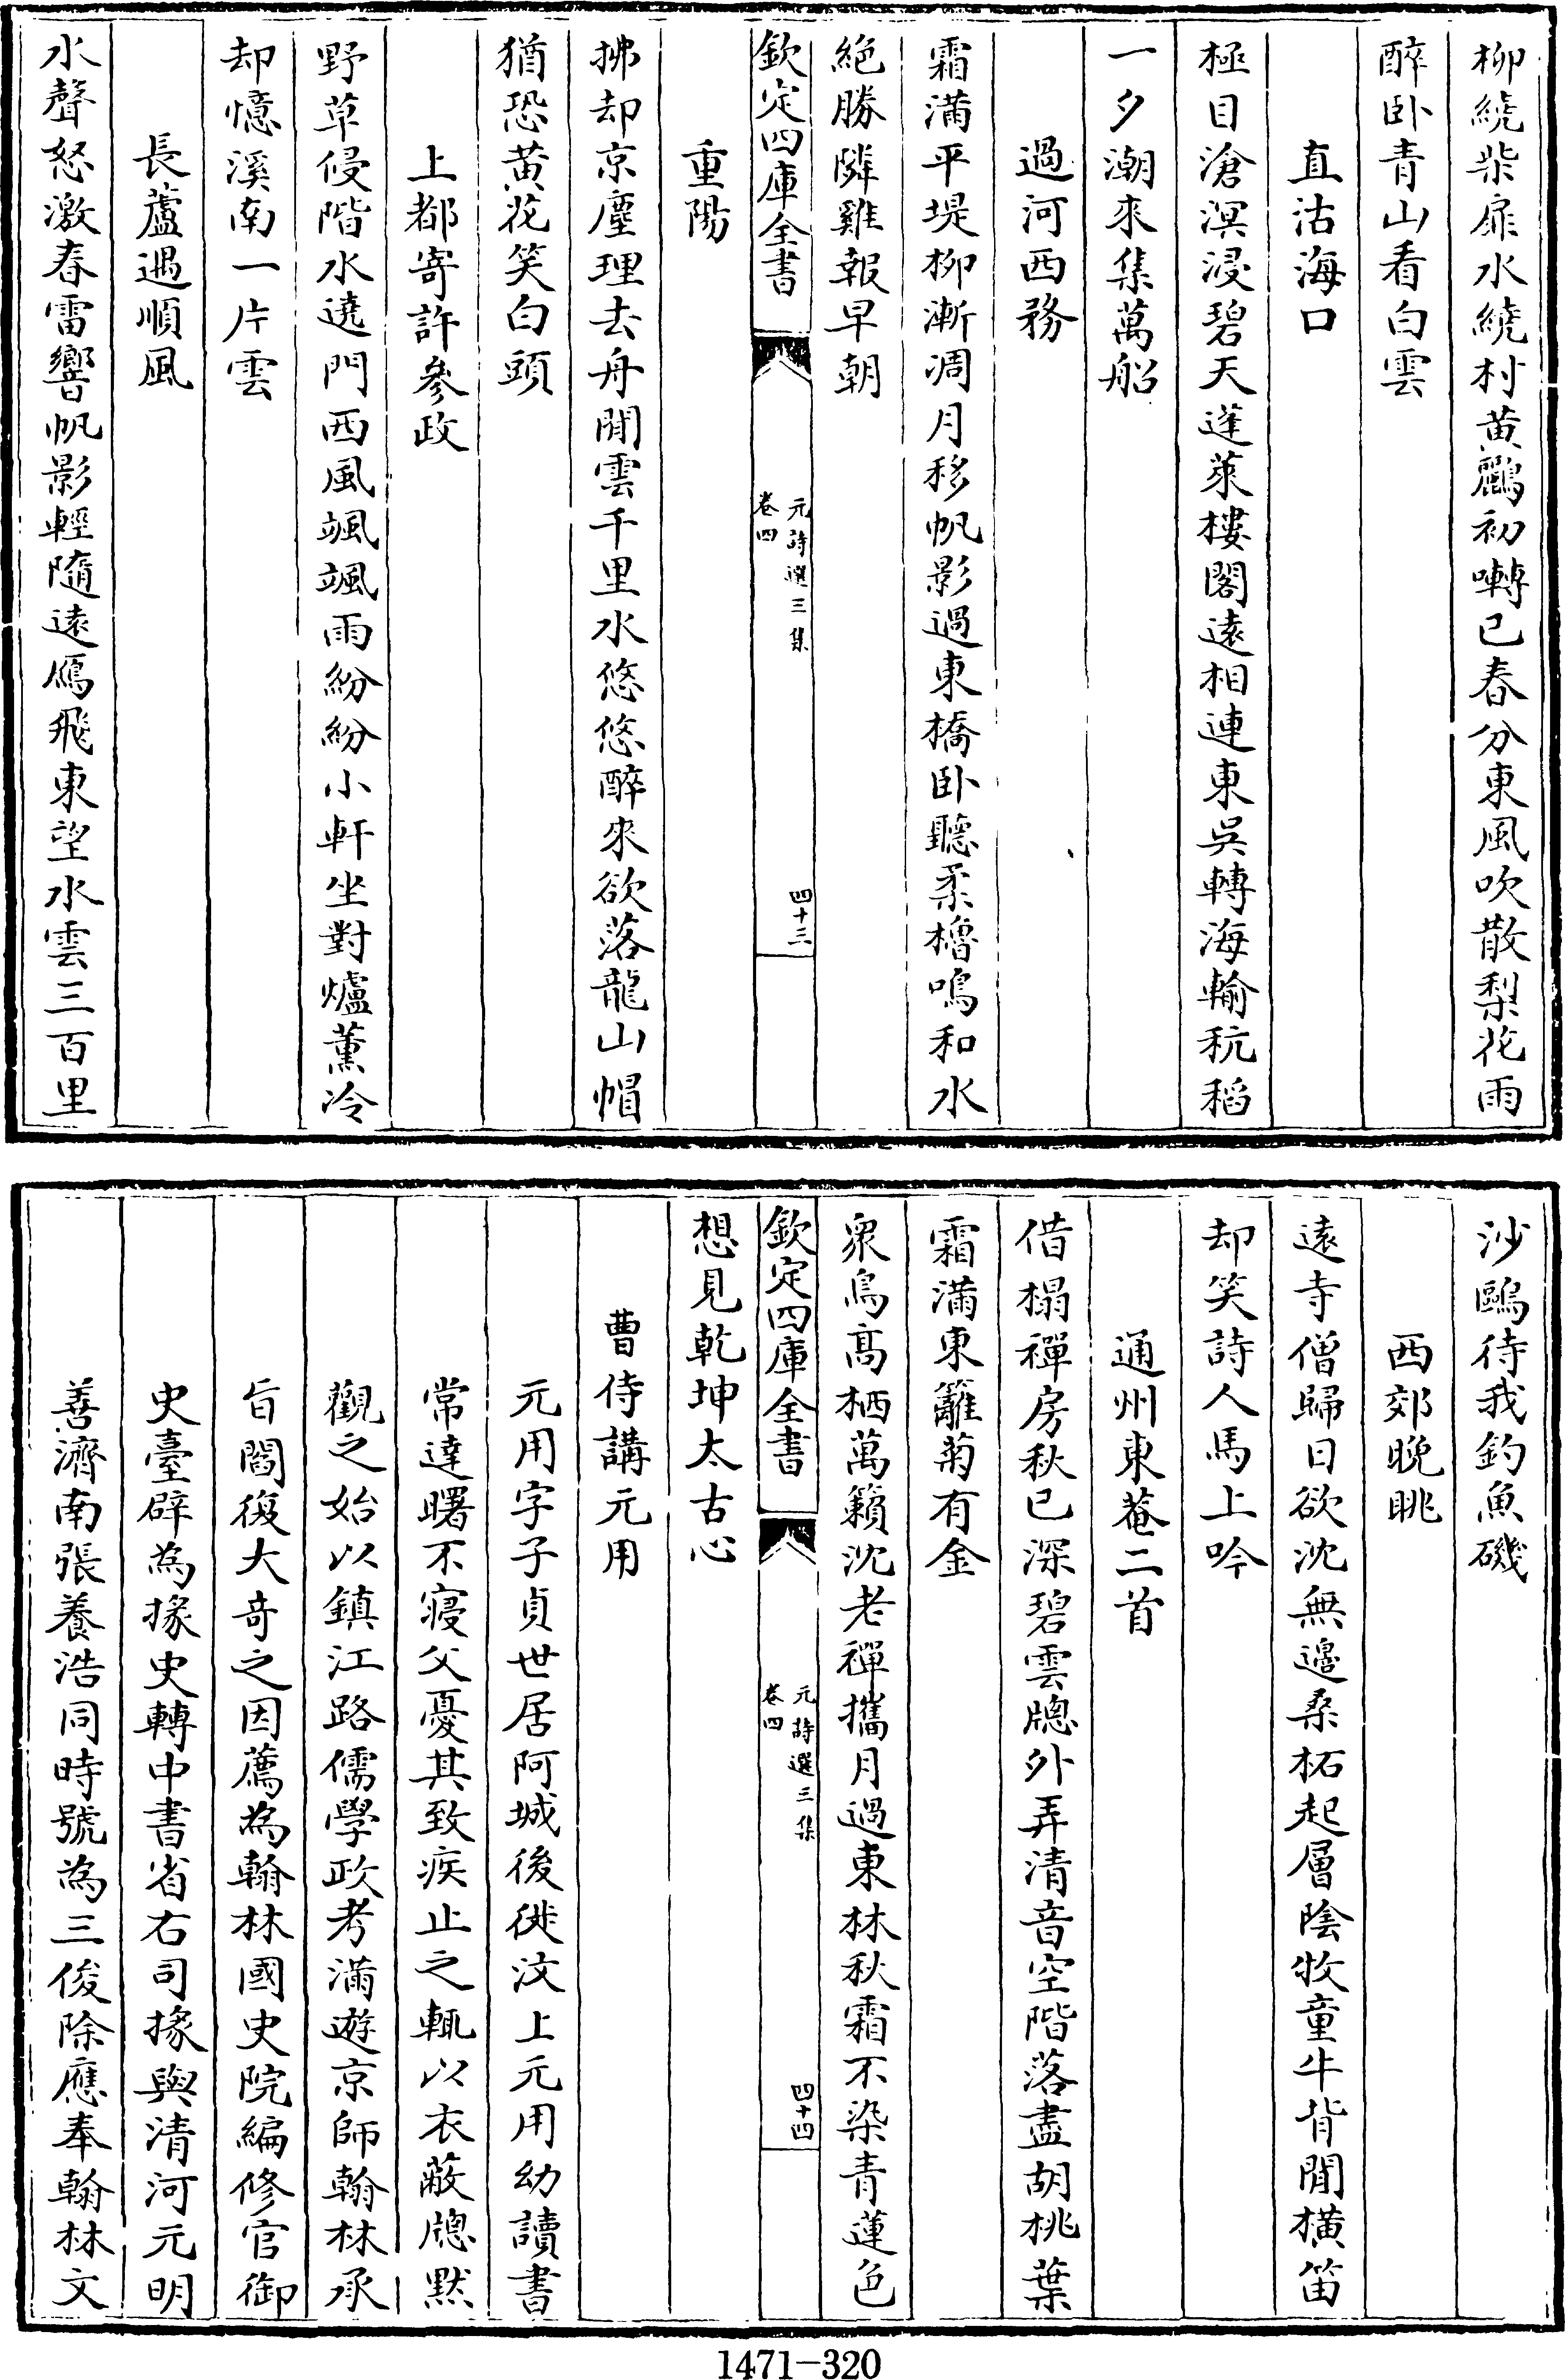 柳繞柴扉水繞村黄鸝初囀已春分東風吹散梨花雨
醉卧青山看白雲
直沽海口
極目滄溟浸碧天蓬萊樓閣遠相連東吳轉海輸秔稻
一夕潮來集萬船
過河西務
霜滿平堤柳漸凋月移帆影過東橋卧聽柔櫓鳴和水
絶勝隣雞報早朝
欽定四庫全書
元詩選三集
卷四
四十三
重陽
拂却京塵理去舟閒雲千里水悠悠醉來欲落龍山帽
猶恐黄花笑白頭
上都寄許參政
野草侵階水遶門西風颯颯雨紛紛小軒坐對爐薰冷
却憶溪南一片雲
長蘆遇順風
水聲怒激春雷響帆影輕隨遠鴈飛東望水雲三百里
沙鷗待我釣魚磯
西郊晚眺
遠寺僧歸日欲沈無邊桑柘起層陰牧童牛背閒橫笛
却笑詩人馬上吟
通州東菴二首
借榻禪房秋已深碧雲牕外弄清音空階落盡胡桃葉
霜滿東籬菊有金
衆鳥高栖萬籟沈老禪攜月過東林秋霜不染青蓮色
欽定四庫全書
元詩選三集
卷四
四十四
想見乾坤太古心
曹侍講元用
元用字子貞世居阿城後徙汶上元用幼讀書
常達曙不寢父憂其致疾止之輒以衣蔽牕默
觀之始以鎮江路儒學政考滿遊京師翰林承
旨閻復大奇之因薦為翰林國史院編修官御
史臺辟為掾史轉中書省右司掾與清河元明
善濟南張養浩同時號為三俊除應奉翰林文
1471-320